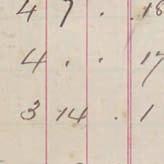 4 7 . . 18
4 . . 17
3 14 . 1